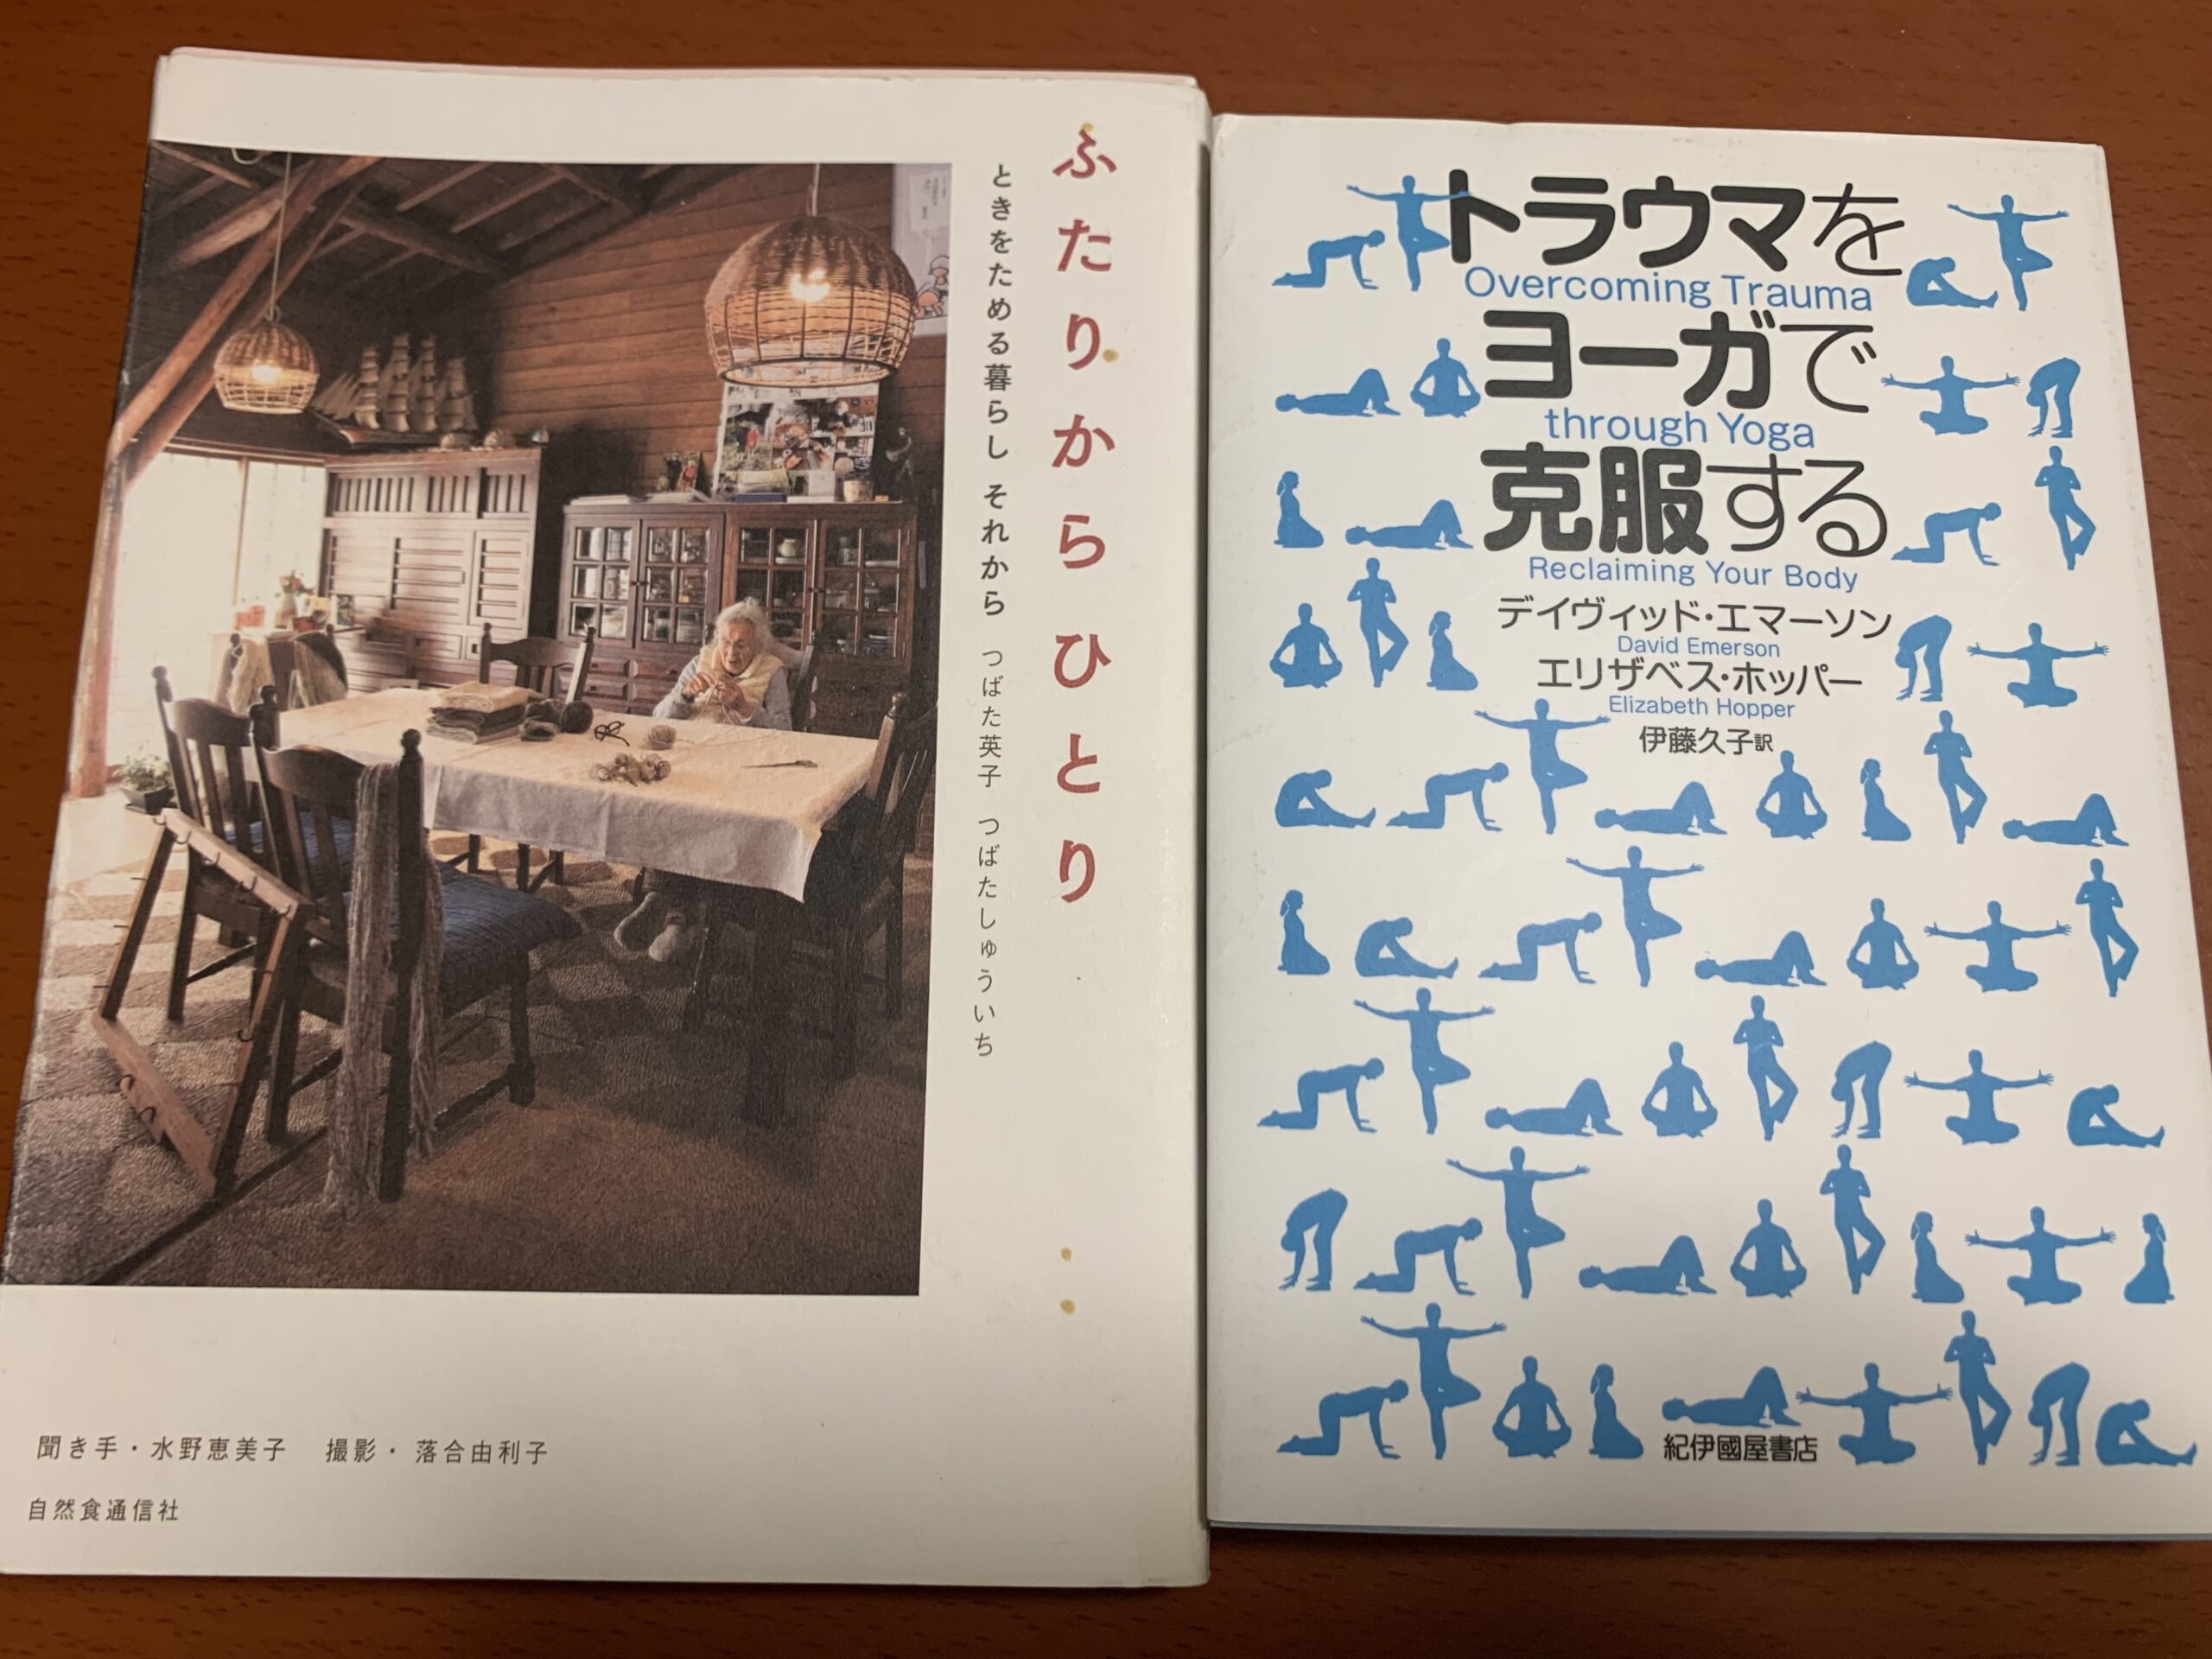 ふたりからひとり
ときをためる暮らし それから つばた英子 つばたしゅういち
聞き手・水野恵美子 撮影・落合由利子
自然食通信社
トラウマを
Overcoming Trauma
ヨーガで
through Yoga
克服する
Reclaiming Your Body
デイヴィッド・エマーソン
David Emerson
エリザベス・ホッパー
Elizabeth Hopper
伊藤久子訳
紀伊國屋書店